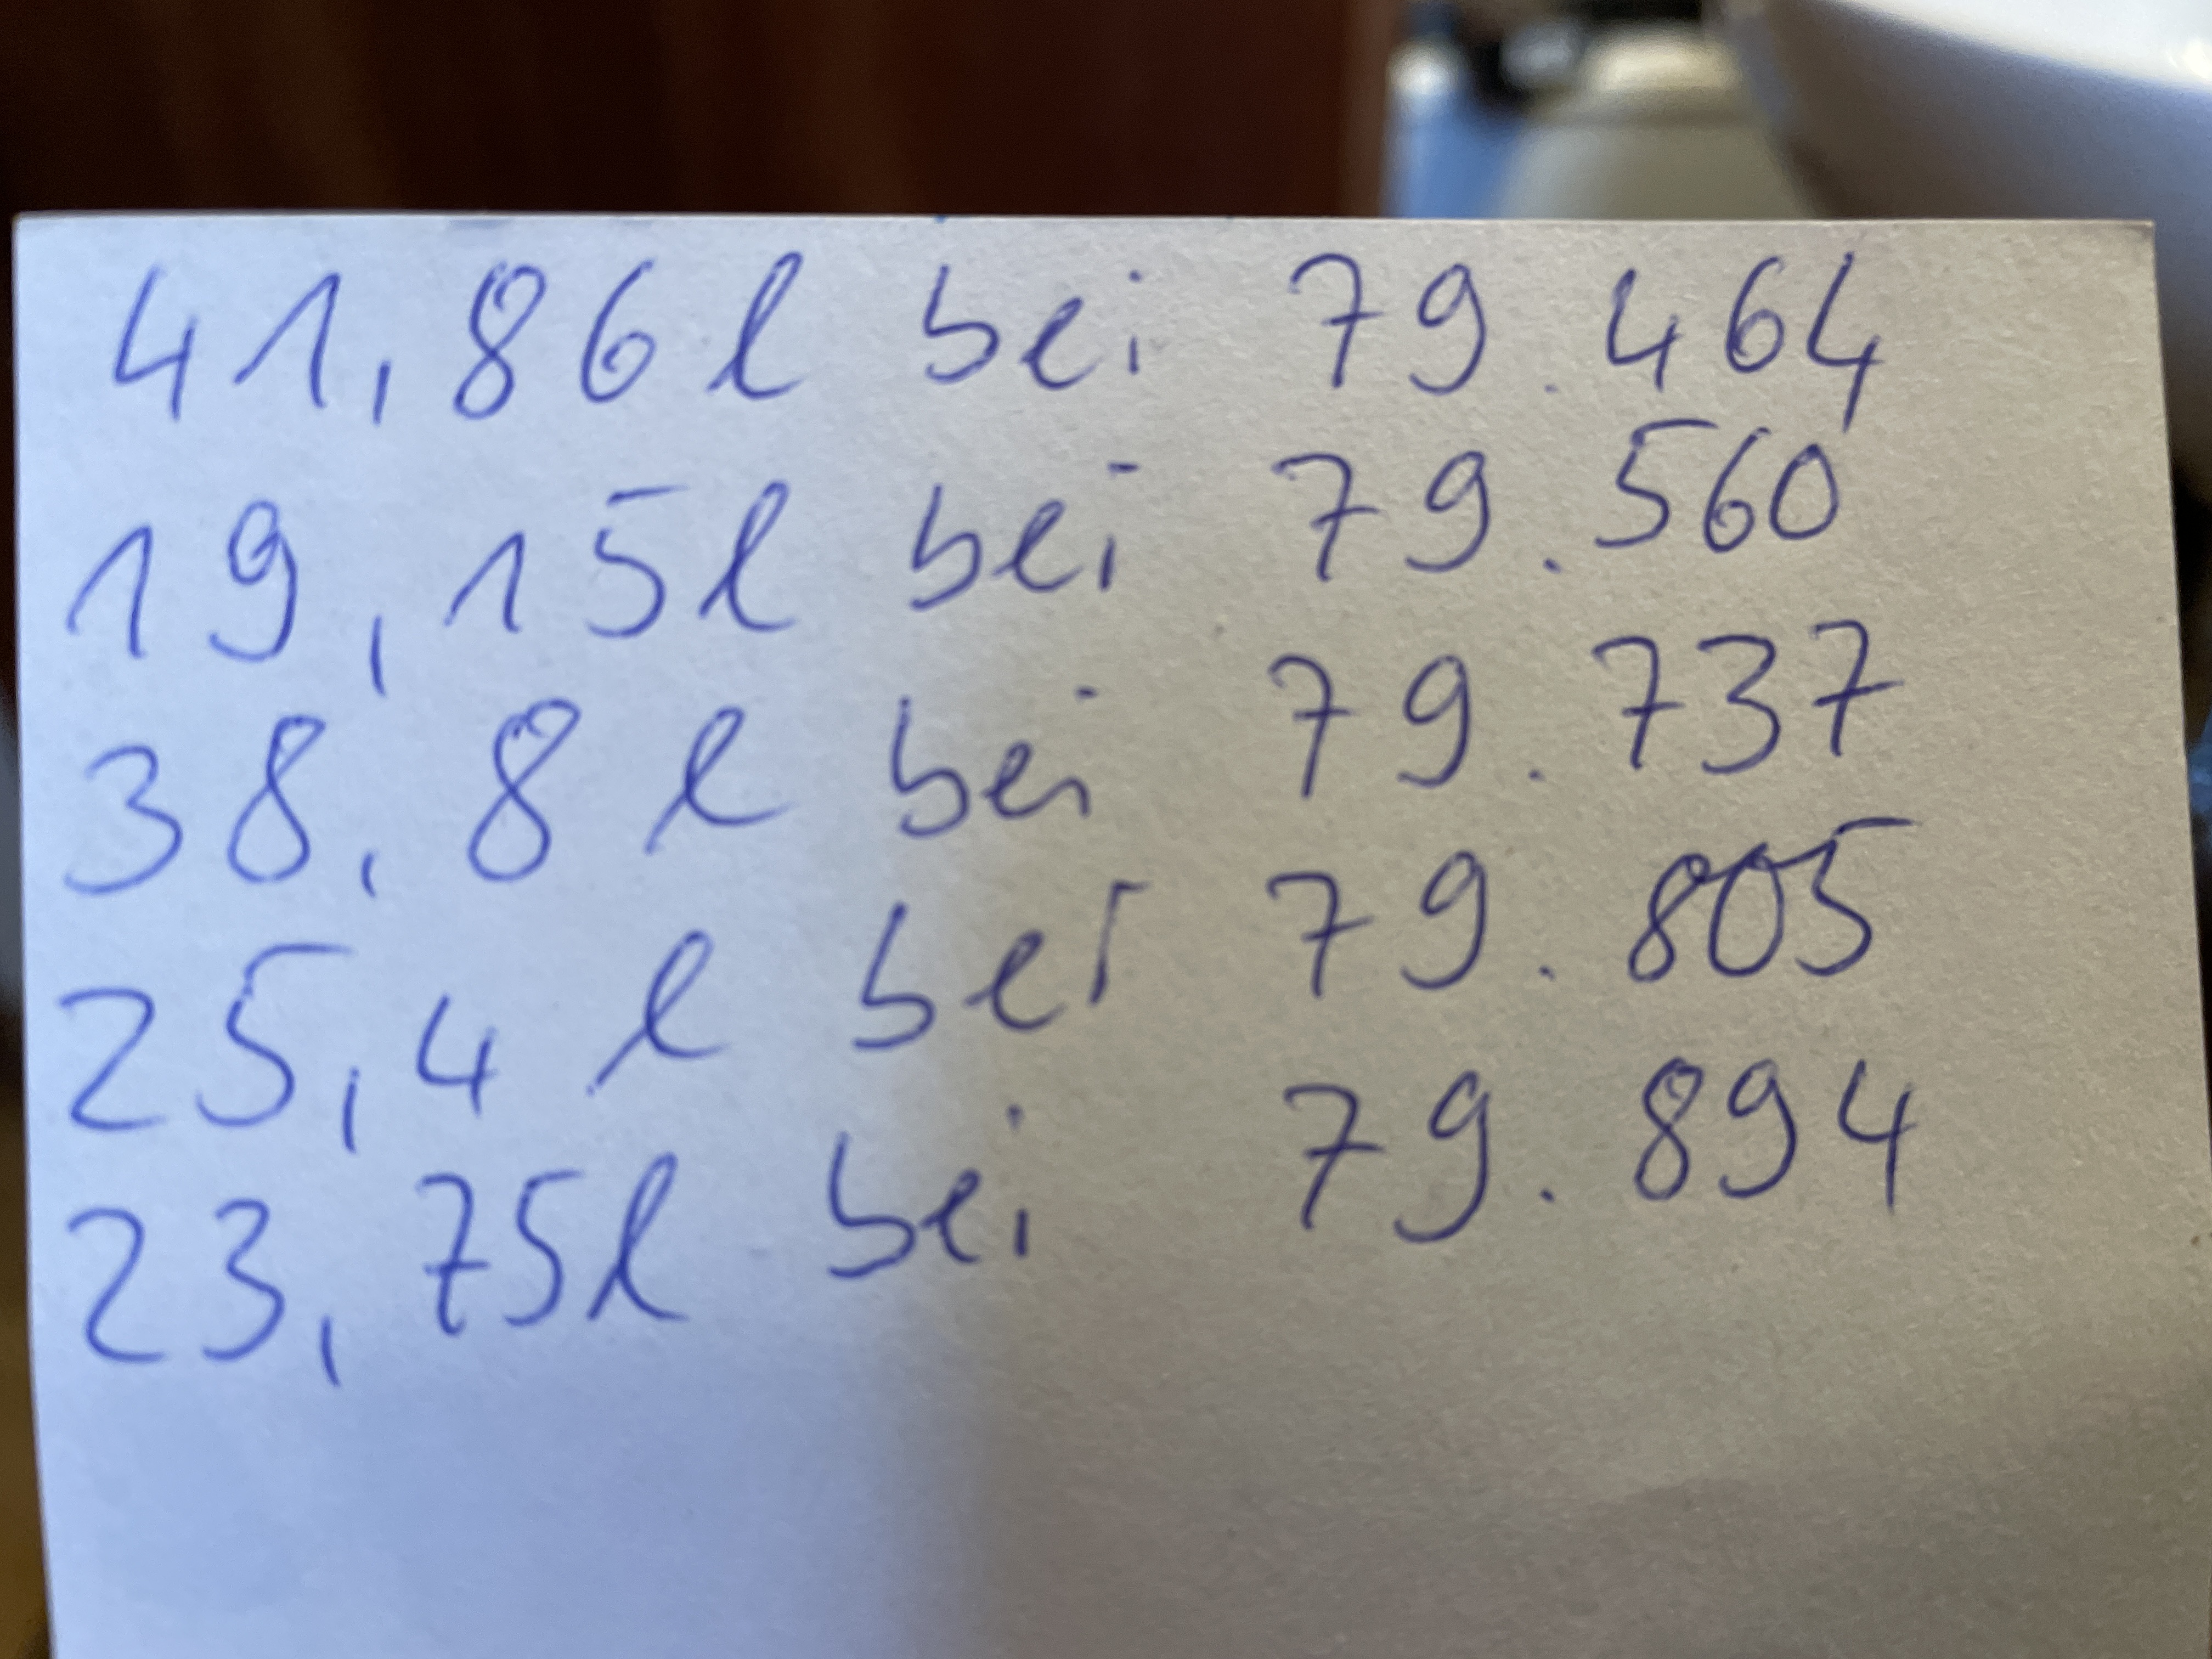 41,86 l bei 79.464
19,15 l bei 79.560
38,8 l bei 79.737
25,4 l bei 79.805
23,75 l bei 79.894